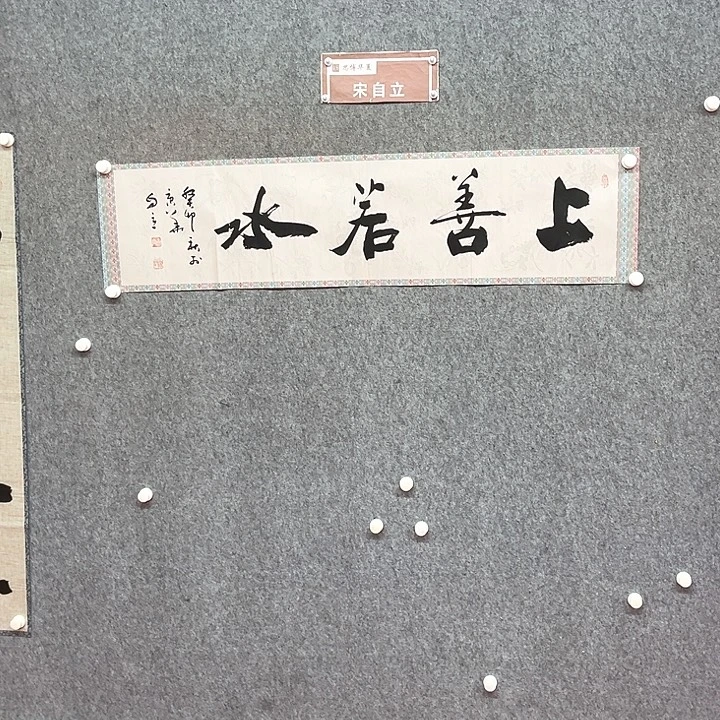 宋自立
上善若水
癸卯秋于
自立